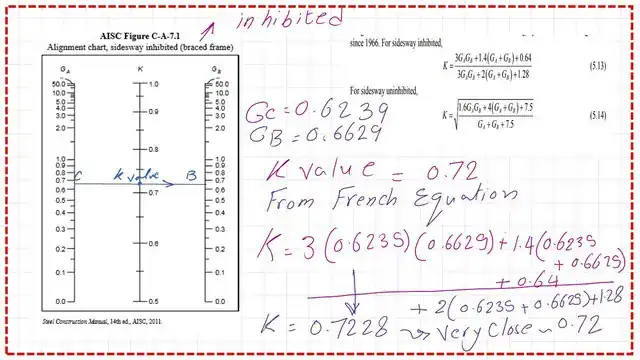 inhibited
AISC Figure C-A-7.1
Alignment chart, sidesway inhibited (braced frame)
GA K GB
50.0 1.0 50.0
10.0 10.0
5.0 5.0
4.0 4.0
3.0 0.9 3.0
2.0 2.0
0.8
1.0 1.0
0.9 0.9
0.8 0.8
0.7 0.7
C K value B
0.6 0.7 0.6
0.5 0.5
0.4 0.4
0.3 0.6 0.3
0.2 0.2
0.1 0.1
0.0 0.5 0.0
Steel Construction Manual, 14th ed., AISC, 2011.
since 1966. For sidesway inhibited,
K = 3GAGB + 1.4(GA + GB) + 0.64 / 3GAGB + 2(GA + GB) + 1.28 (5.13)
For sidesway uninhibited,
K = √ 1.6GAGB + 4(GA + GB) + 7.5 / GA + GB + 7.5 (5.14)
Gc = 0.6239
GB = 0.6629
K value = 0.72
From French Equation
K = 3(0.6235)(0.6629) + 1.4(0.6235
+ 0.6629)
+ 0.64
+ 2(0.6235 + 0.6629) + 1.28
K = 0.7228 → Very Close ~ 0.72